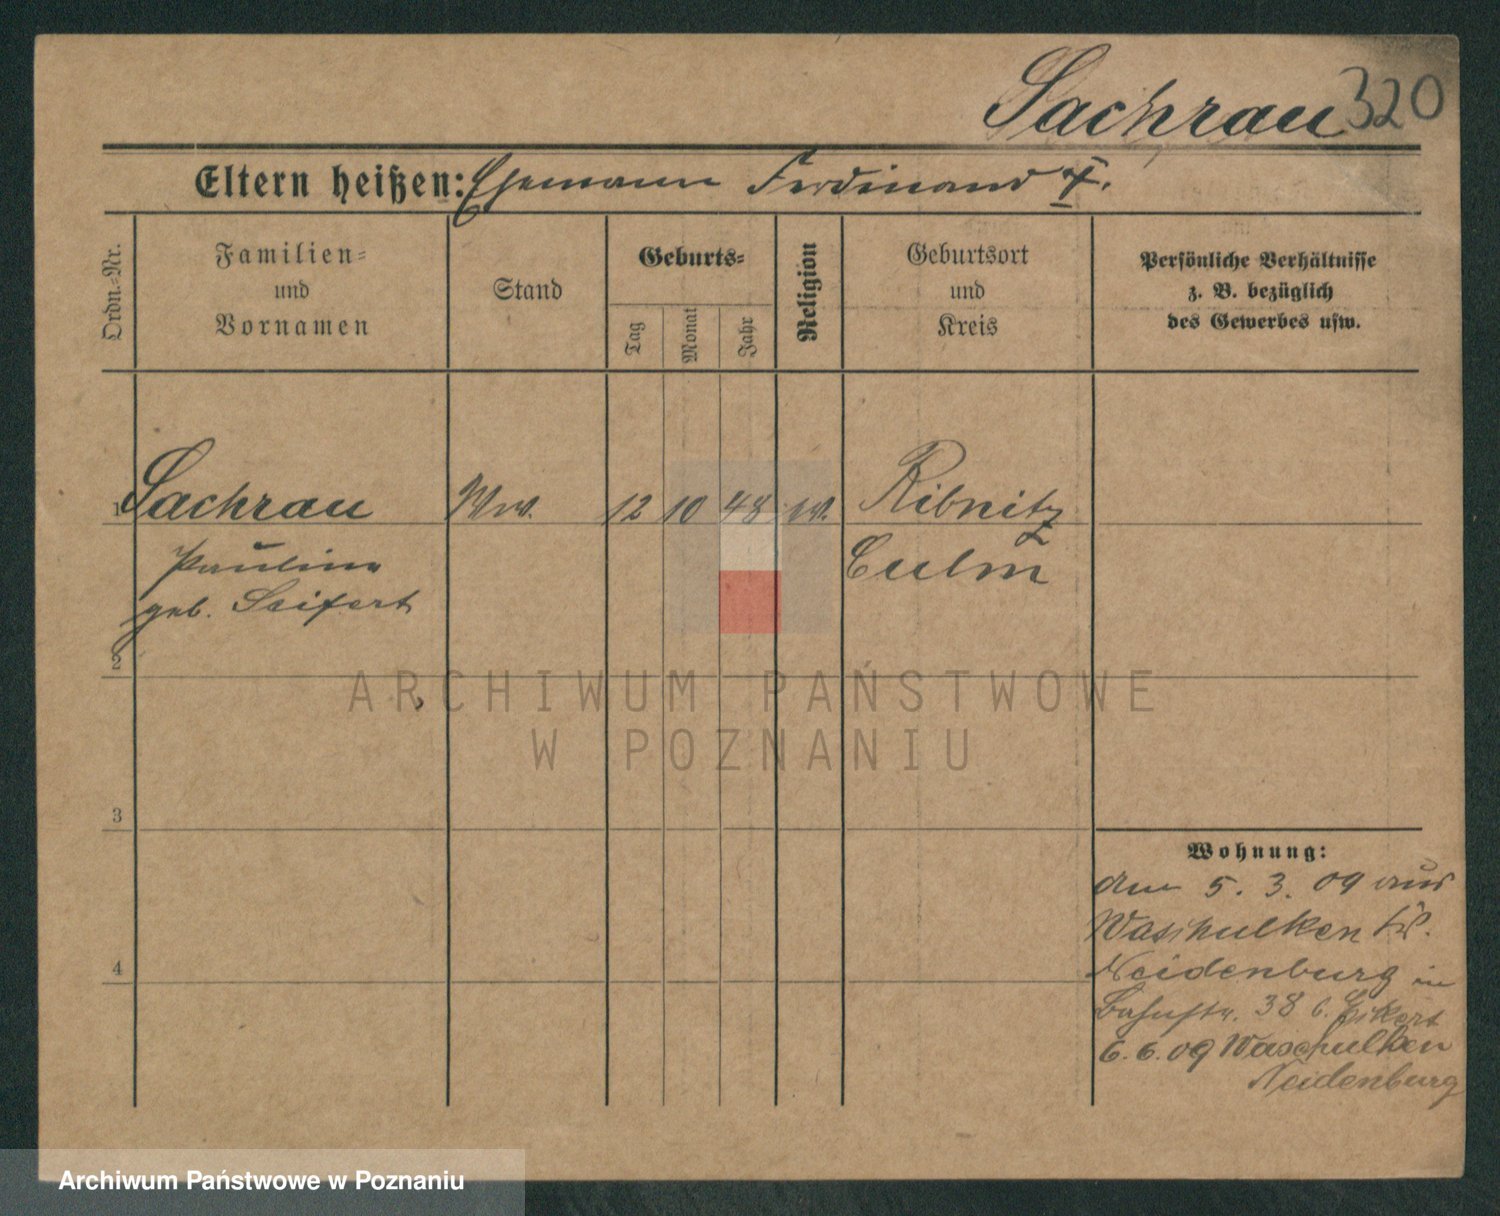 Sachrau 320
Eltern heißen: Ehemann Ferdinand †.
Ordn.-Nr.
Familien-
und
Vornamen
Stand
Geburts-
Tag
Monat
Jahr
Religion
Geburtsort
und
Kreis
Persönliche Verhältnisse
z. B. bezüglich
des Gewerbes usw.
1 Sachrau Ww. 12 10 48 ev. Ribnitz
Culm
Pauline
geb. Seifert
2
ARCHIWUM PAŃSTWOWE
W POZNANIU
3
Wohnung:
am 5. 3. 09 aus
Waschulken Kr.
4
Neidenburg in
Bahnstr. 38 b. Eikert
6. 6. 09 Waschulken
Neidenburg
Archiwum Państwowe w Poznaniu